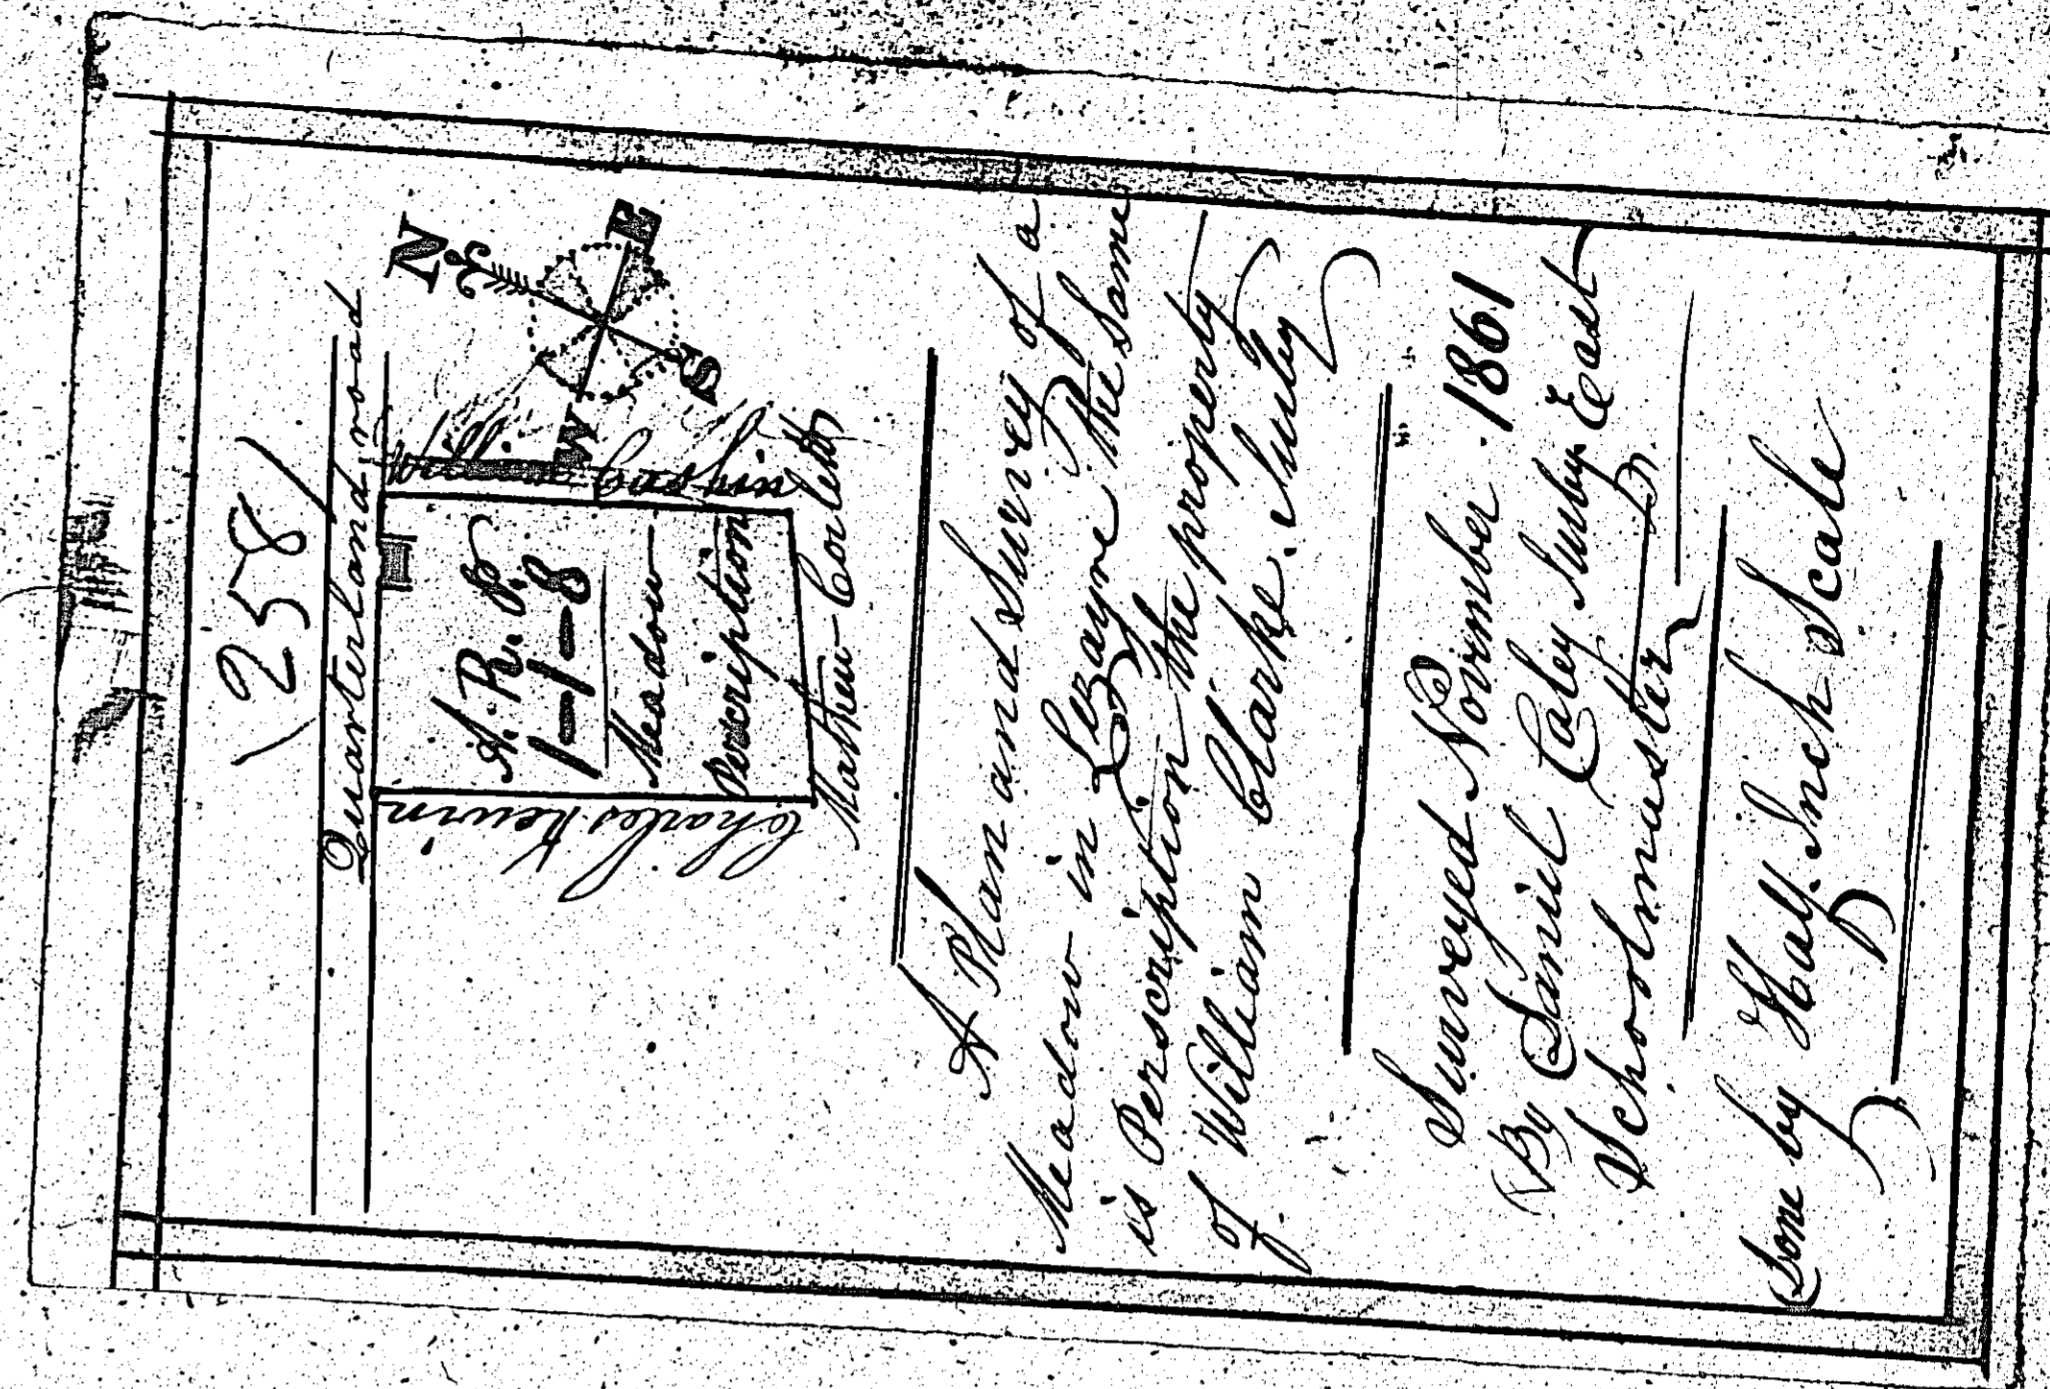 258
Quarterland road
N
E
S
W
William Cashin
A. R. P.
1-1-8
Meadow
Perscription
Charles Kewin
Mathew Corlett
A Plan and Survey of a
Meadow in Lezayre The Same
is Perscription the property
of William Clarke. Sulby
Surveyed November 1861
By Daniel Caley Sulby East
Schoolmaster
Done by Half. Inch Scale